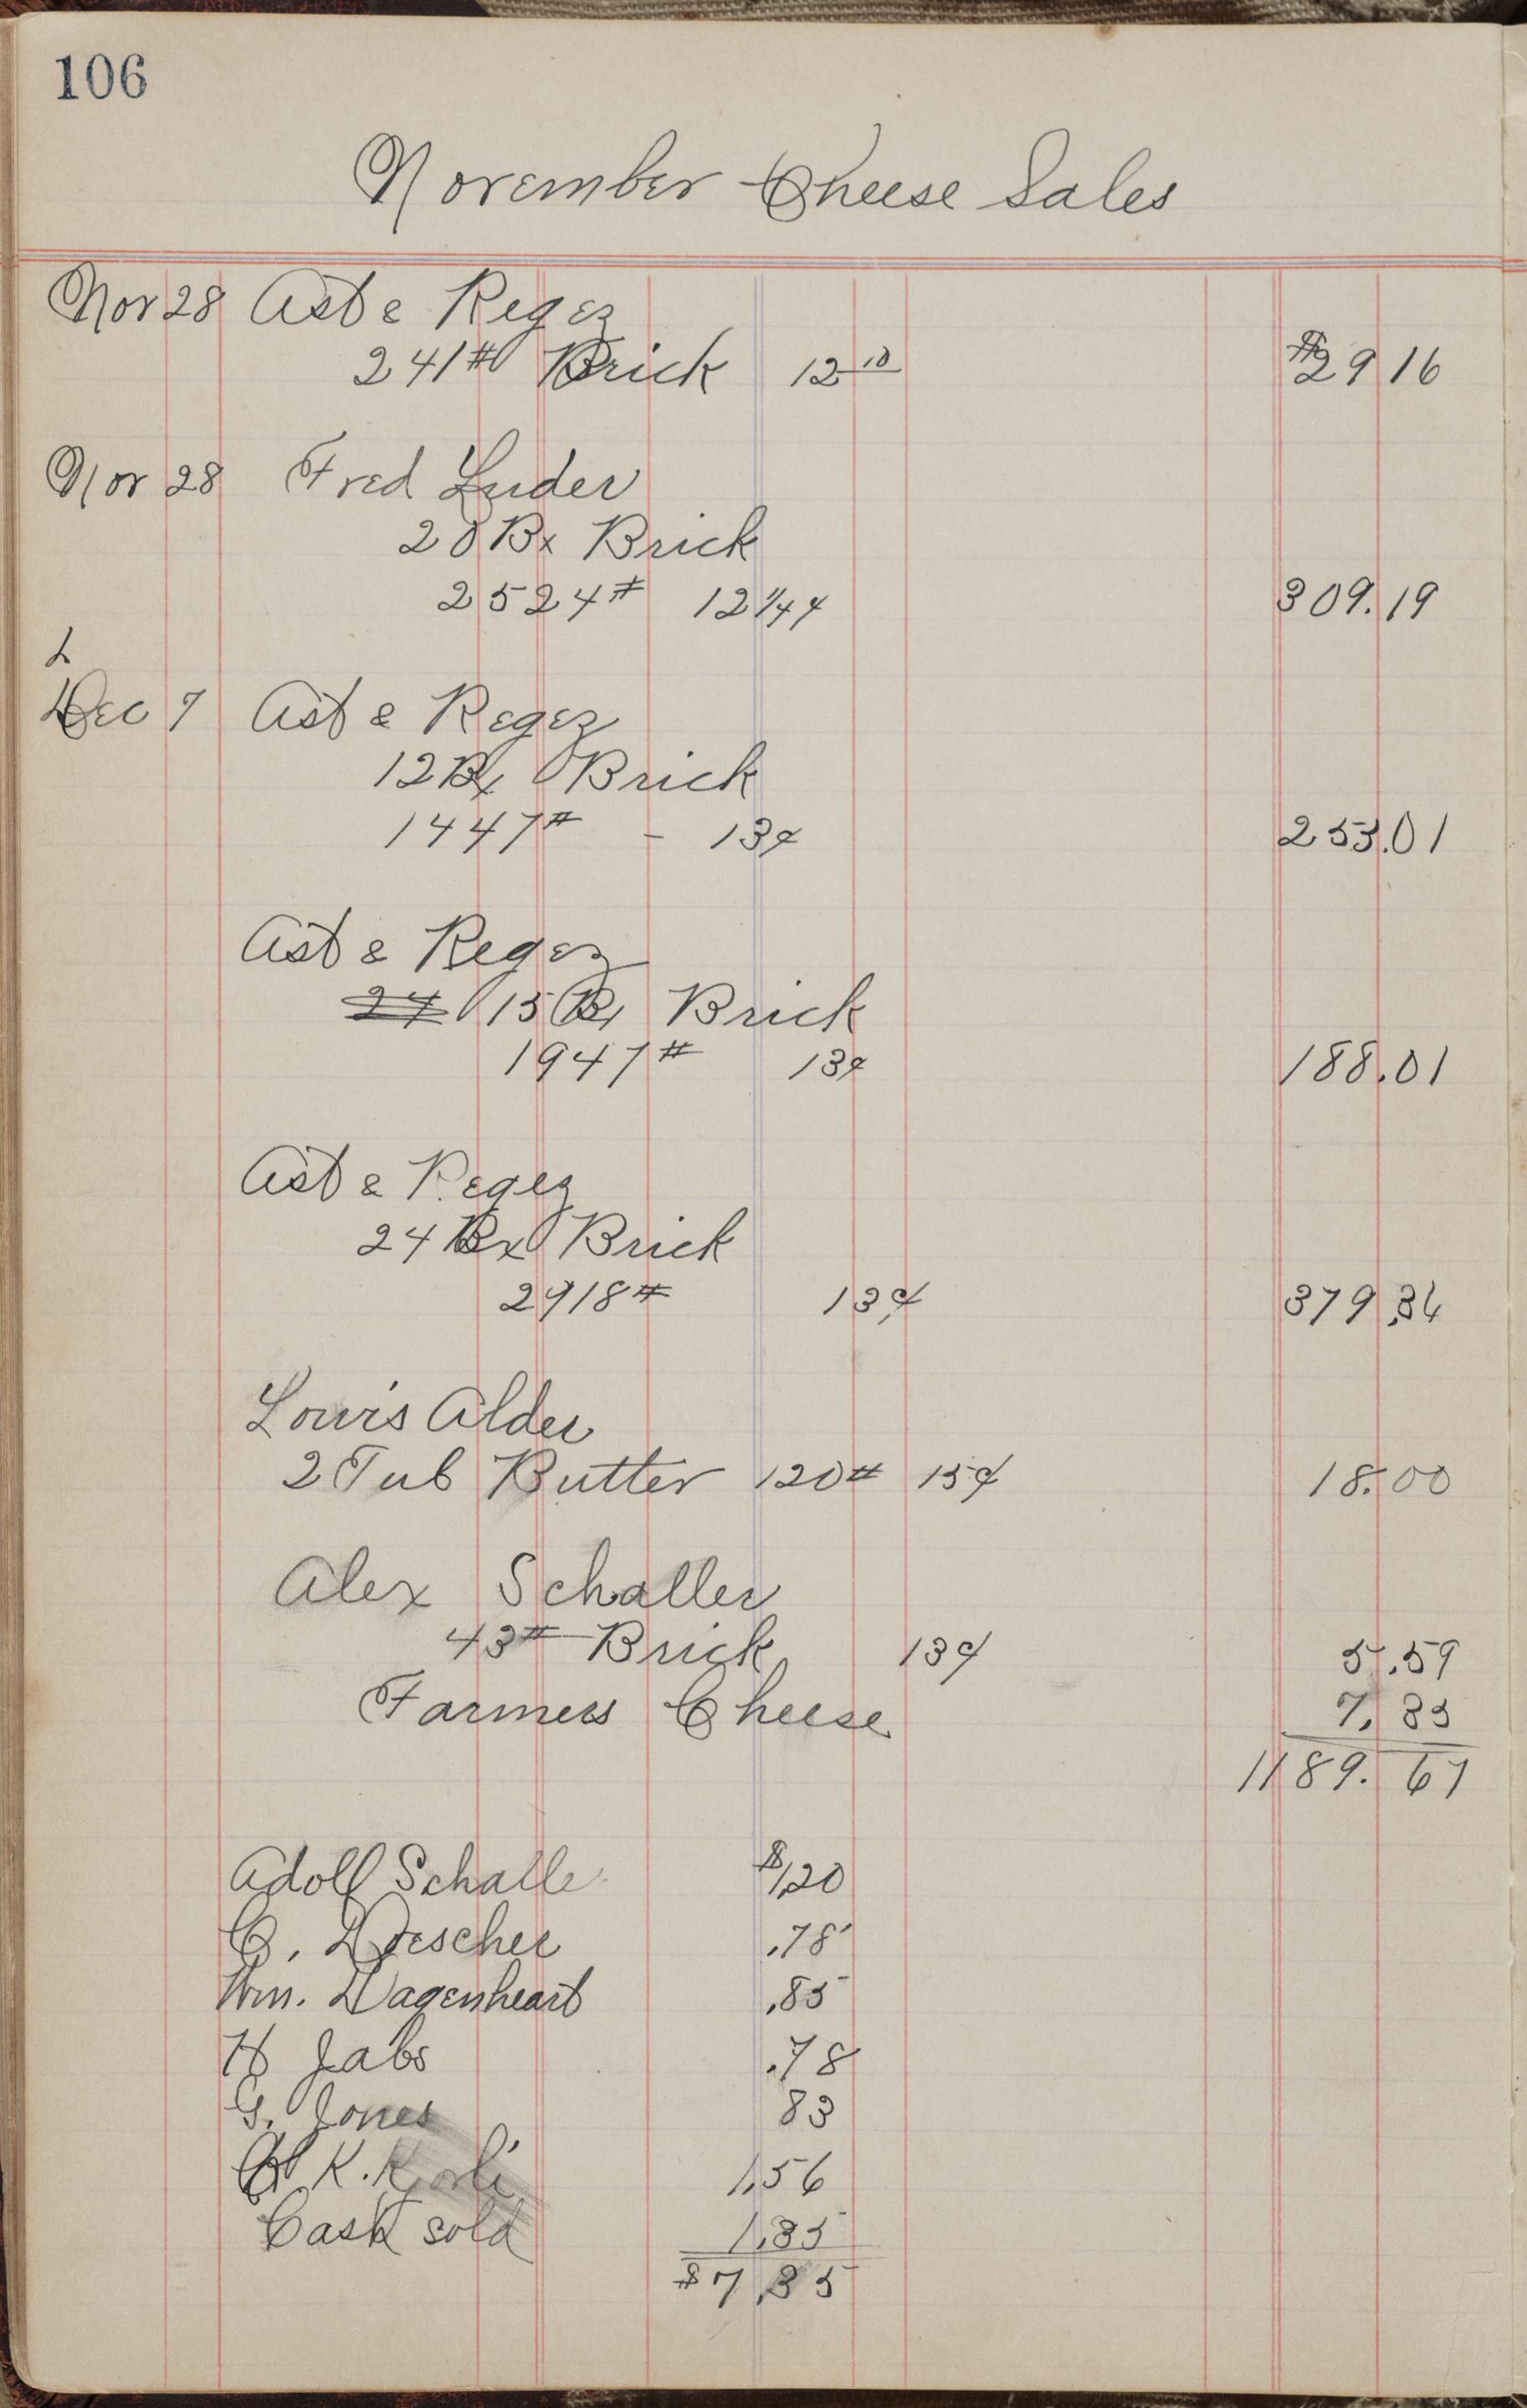 106
November Cheese Sales
Nov 28 Ast & Regez
241# Brick 12 10 $29 16
Nov 28 Fred Luder
20 Bx Brick
2524# 12 1/4 ¢ 309.19
Dec 7 Ast & Regez
12 Bx Brick
1447# - 13¢ 253.01
Ast & Regez
24 15 Bx Brick
1947# 13¢ 188.01
Ast & Regez
24 Bx Brick
2918# 13¢ 379.34
Louis Alder
2 Tub Butter 120# 15¢ 18.00
Alex Schaller
43# Brick 13¢ 5.59
Farmers Cheese 7.85
1189.67
Adolf Schalle $1.20
C. Doescher .78
Wm. Dagenheart .85
H Jabs .78
G. Jones 83
K. 1.56
Cash sold 1.85
$7.85